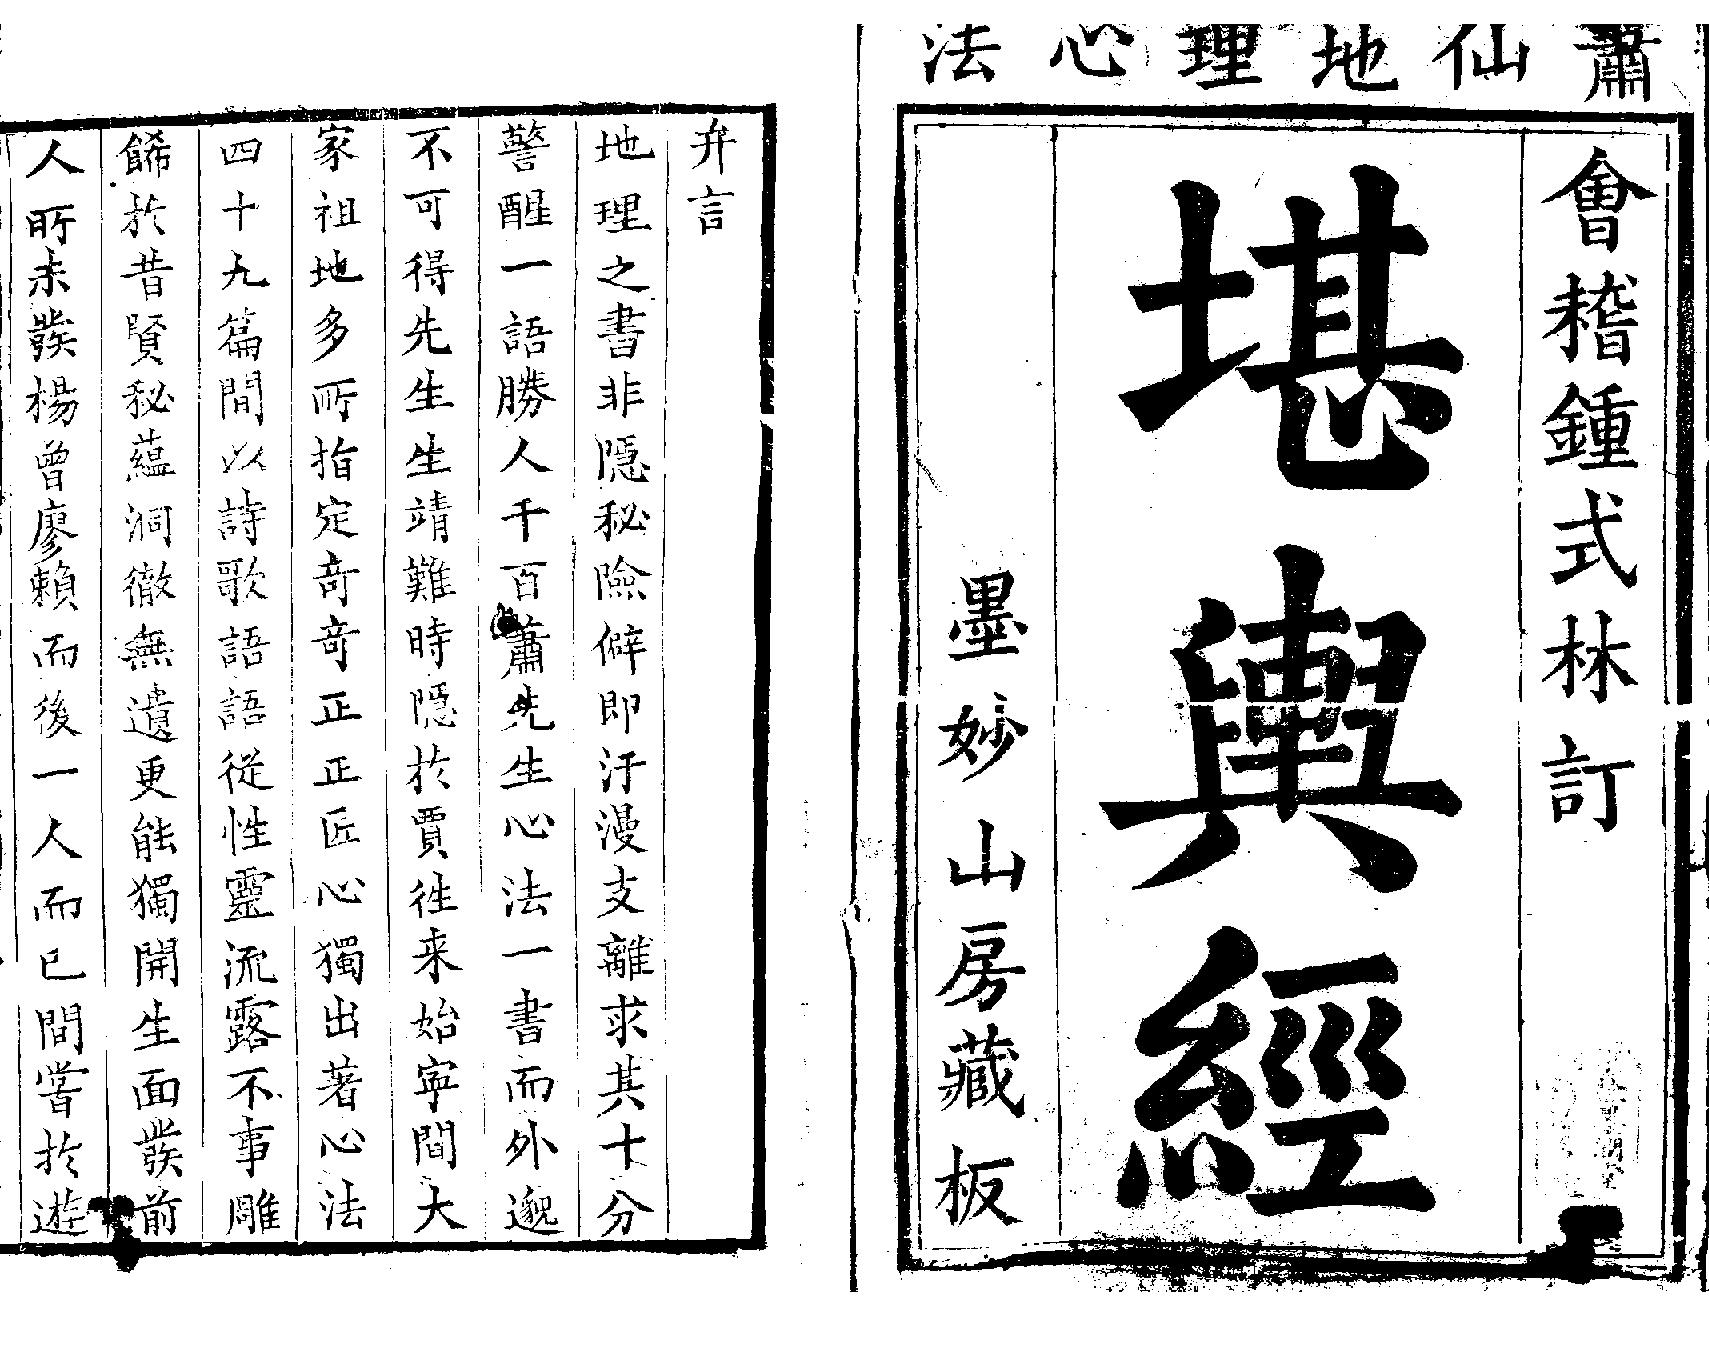 蕭仙地理心法
會稽鍾式林訂
堪輿經
墨妙山房藏板
弁言
地理之書非隱秘險僻即汗漫支離求其十分
警醒一語勝人千百蕭先生心法一書而外邈
不可得先生生靖難時隱於賈徃来始寕間大
家祖地多所指定奇奇正正匠心獨出著心法
四十九篇間以詩歌語語從性靈流露不事雕
餙於昔賢秘蘊洞徹無遺更能獨開生面發前
人所未發楊曾廖賴而後一人而已間嘗於遊